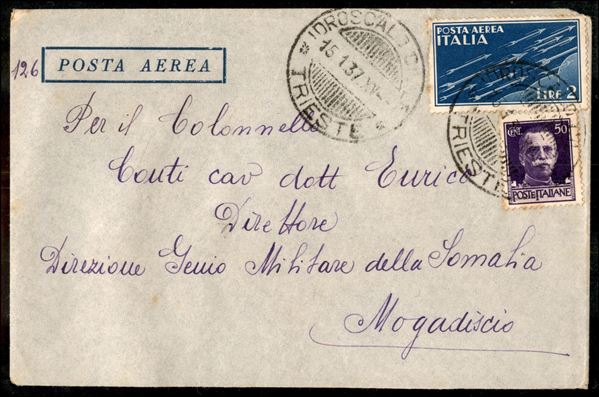 126
POSTA AEREA
IDROSCALO
* 15.1.37.XV
TRIESTE *
POSTA AEREA
ITALIA
LIRE 2
CENT. 50
POSTE ITALIANE
TRIESTE
Per il Colonnello
Conti cav dott Enrico
Direttore
Direzione Genio Militare della Somalia
Mogadiscio